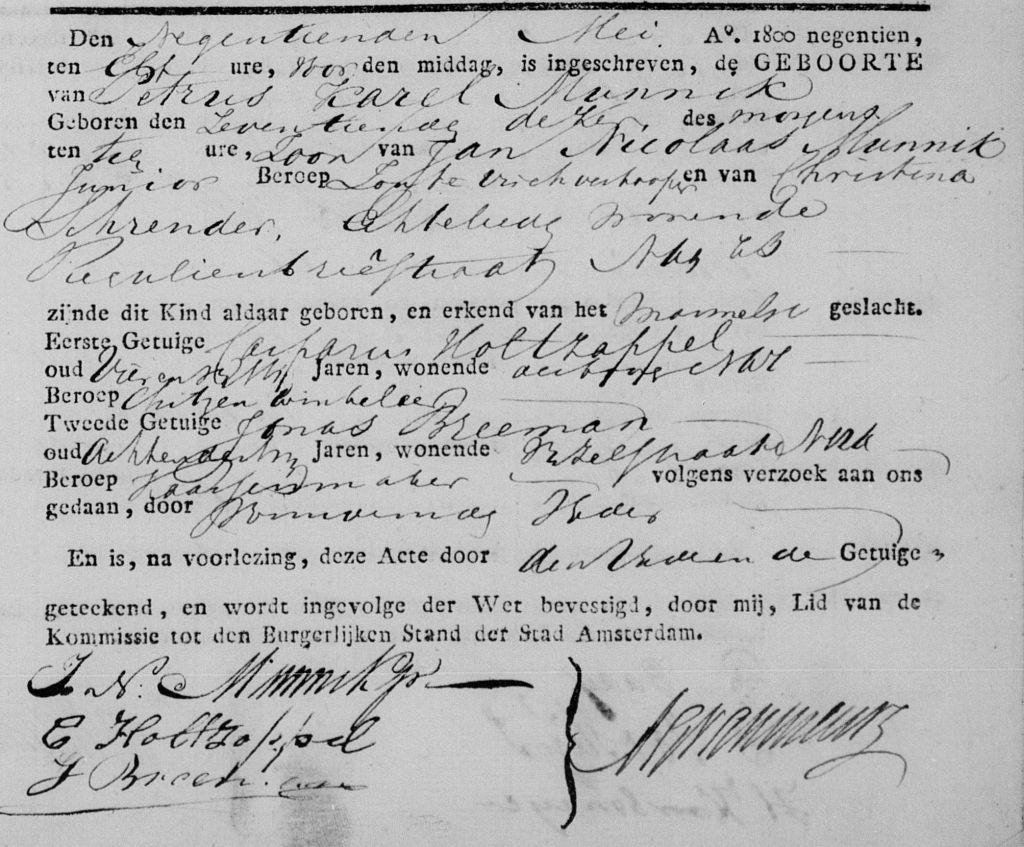 Den Negentienden Mei. A⁰. 1800 negentien,
ten Elf ure, voor den middag, is ingeschreven, de GEBOORTE
van Petrus Karel Munnik
Geboren den Zeventiende dezer des morgens
ten ure, Zoon van Jan Nicolaas Munnik
Junior Beroep Zoute vischverkooper en van Christina
Schrender, Echtelieden wonende
Regulierbreêstraat
zijnde dit Kind aldaar geboren, en erkend van het Mannelijk geslacht.
Eerste Getuige Casparus Holtzappel
oud Jaren, wonende
Beroep winkelier
Tweede Getuige Jonas Breeman
oud Achtendertig Jaren, wonende
Beroep Kaarsenmaker volgens verzoek aan ons
gedaan, door Vader
En is, na voorlezing, deze Acte door den Vader en de Getuige
geteekend, en wordt ingevolge der Wet bevestigd, door mij, Lid van de
Kommissie tot den Burgerlijken Stand der Stad Amsterdam.
J. N. Munnik Jr
C Holtzappel
J Breeman